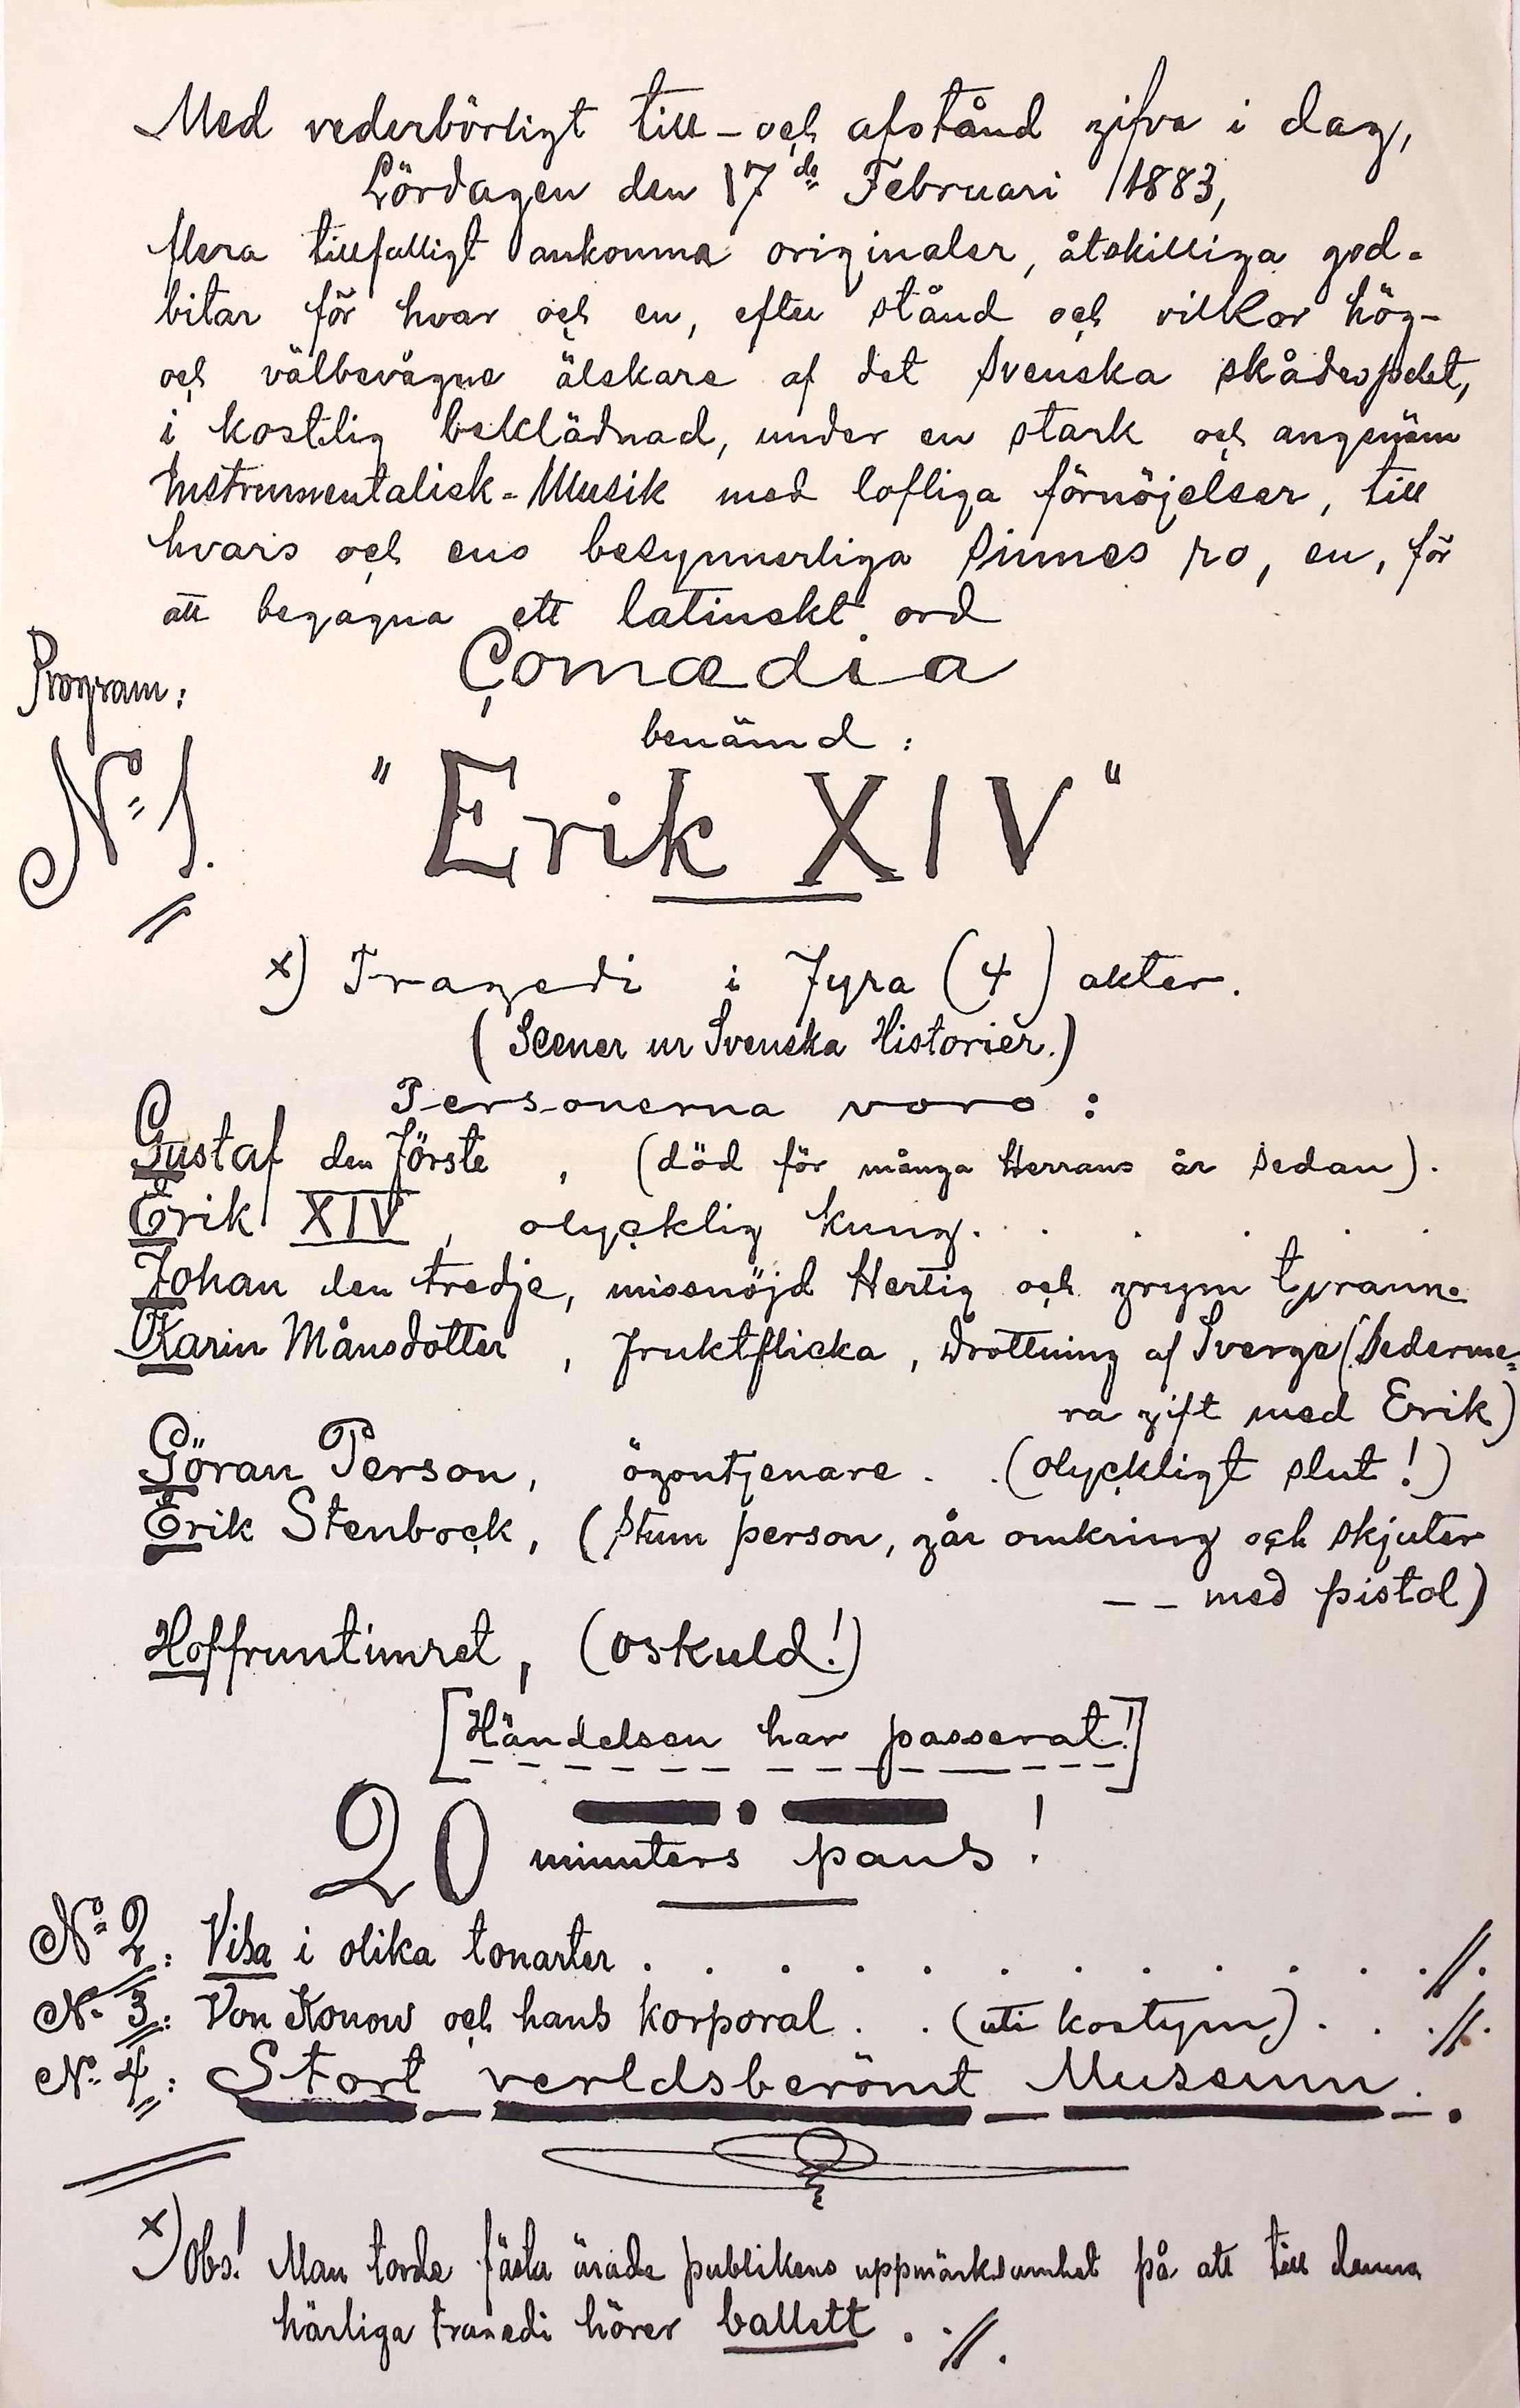 Med vederbörligt till- och afstånd gifva i dag,
Lördagen den 17de Februari 1883,
flera tillfälligt ankomna originaler, åtskilliga god-
bitar för hvar och en, efter stånd och vilkor hög-
och välbevågne älskare af det svenska skådespelet,
i kostelig beklädnad, under en stark och angenäm
Instrumentalisk-Musik med lofliga förnöjelser, till
hvars och ens besynnerliga sinnes ro, en, för
att begagna ett latinskt ord
Comœdia
Program:
benämd:
No 1.
"Erik XIV"
x) Tragedi i Fyra (4) akter.
(Scener ur Svenska Historien.)
Personerna voro:
Gustaf den Förste, (död för många Herrans år sedan).
Erik XIV, olycklig kung. . . . . .
Johan den tredje, missnöjd Hertig och grym tyrann.
Karin Månsdotter, fruktflicka, drottning af Sverge (sederme=
ra gift med Erik)
Göran Person, ögontjenare. . (olyckligt slut!)
Erik Stenbock, (stum person, går omkring och skjuter
-- med pistol)
Hoffruntimret, (oskuld!)
[Händelsen har passerat!]
20 minuters paus!
No 2: Visa i olika tonarter . . . . . . . . . . . . .//.
No 3: Von Konow och hans korporal. . (uti kostym). . .//.
No 4: Stort verldsberömt Museum.
x) Obs! Man torde fästa ärade publikens uppmärksamhet på att till denna
härliga tragedi hörer ballett. .//.